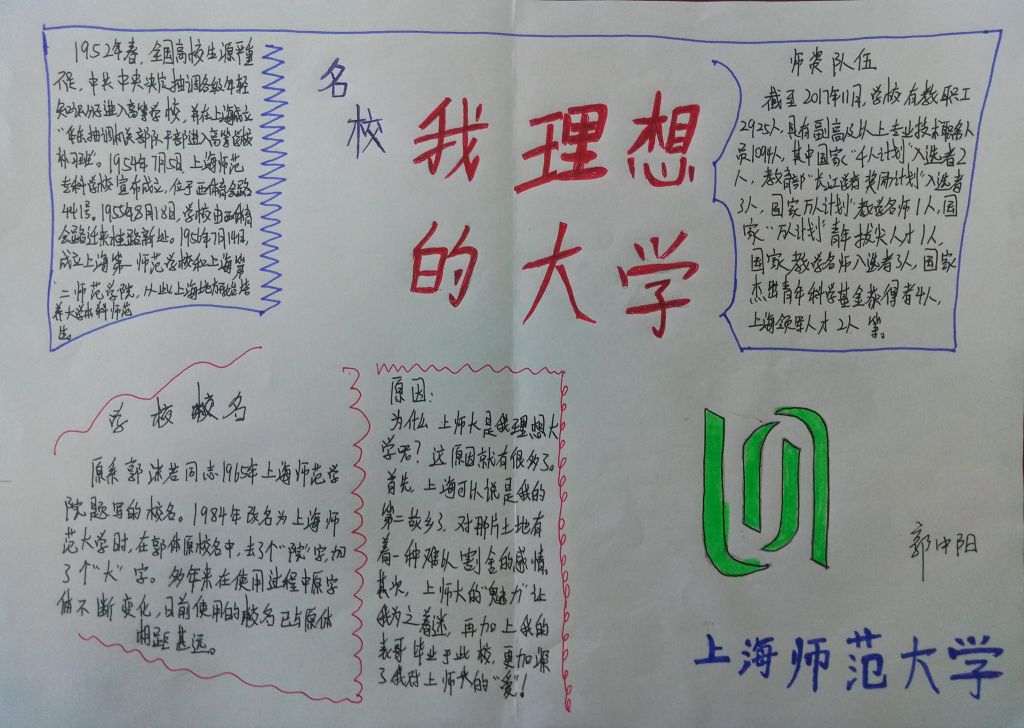 1952年春，全国高校生源严重
不足，中共中央决定抽调各级年轻
知识分子进入高等学校，并在上海成立
抽调机关部队干部进入高等学校
补习班”。1954年7月5日上海师范
专科学校宣布成立，位于西体育会路
441号。1955年8月18日，学校由西体育
会路迁来桂路新址。1956年7月14日，
成立上海第一师范学院和上海第
二师范学院，从此上海地方开始培
养大学本科师范
生。
名
校
我理想
的大学
师资队伍
截至2017年11月，学校有教职工
2925人，具有副高及以上专业技术职务人
员1094人，其中国家“4人计划”入选者2
人，教育部“长江学者奖励计划”入选者
3人，国家万人计划”教学名师1人，国
家“万人计划”青年拔尖人才1人，
国家教学名师入选者3人，国家
杰出青年科学基金获得者4人，
上海领军人才2人等。
学校校名
原系郭沫若同志1965年上海师范学
院题写的校名。1984年改名为上海师
范大学时，在郭体原校名中，去了个“院”字，加
了个“大”字。多年来在使用过程中原字
体不断变化，目前使用的校名已与原体
相距甚远。
原因：
为什么上师大是我理想大
学呢？这原因就有很多了。
首先，上海可以说是我的
第二故乡了，对那片土地有
着一种难以割舍的感情。
其次，上师大的“魅力”让
我为之着迷，再加上我的
表哥毕业于此校，更加深
了我对上师大的“爱”！
郭中阳
上海师范大学